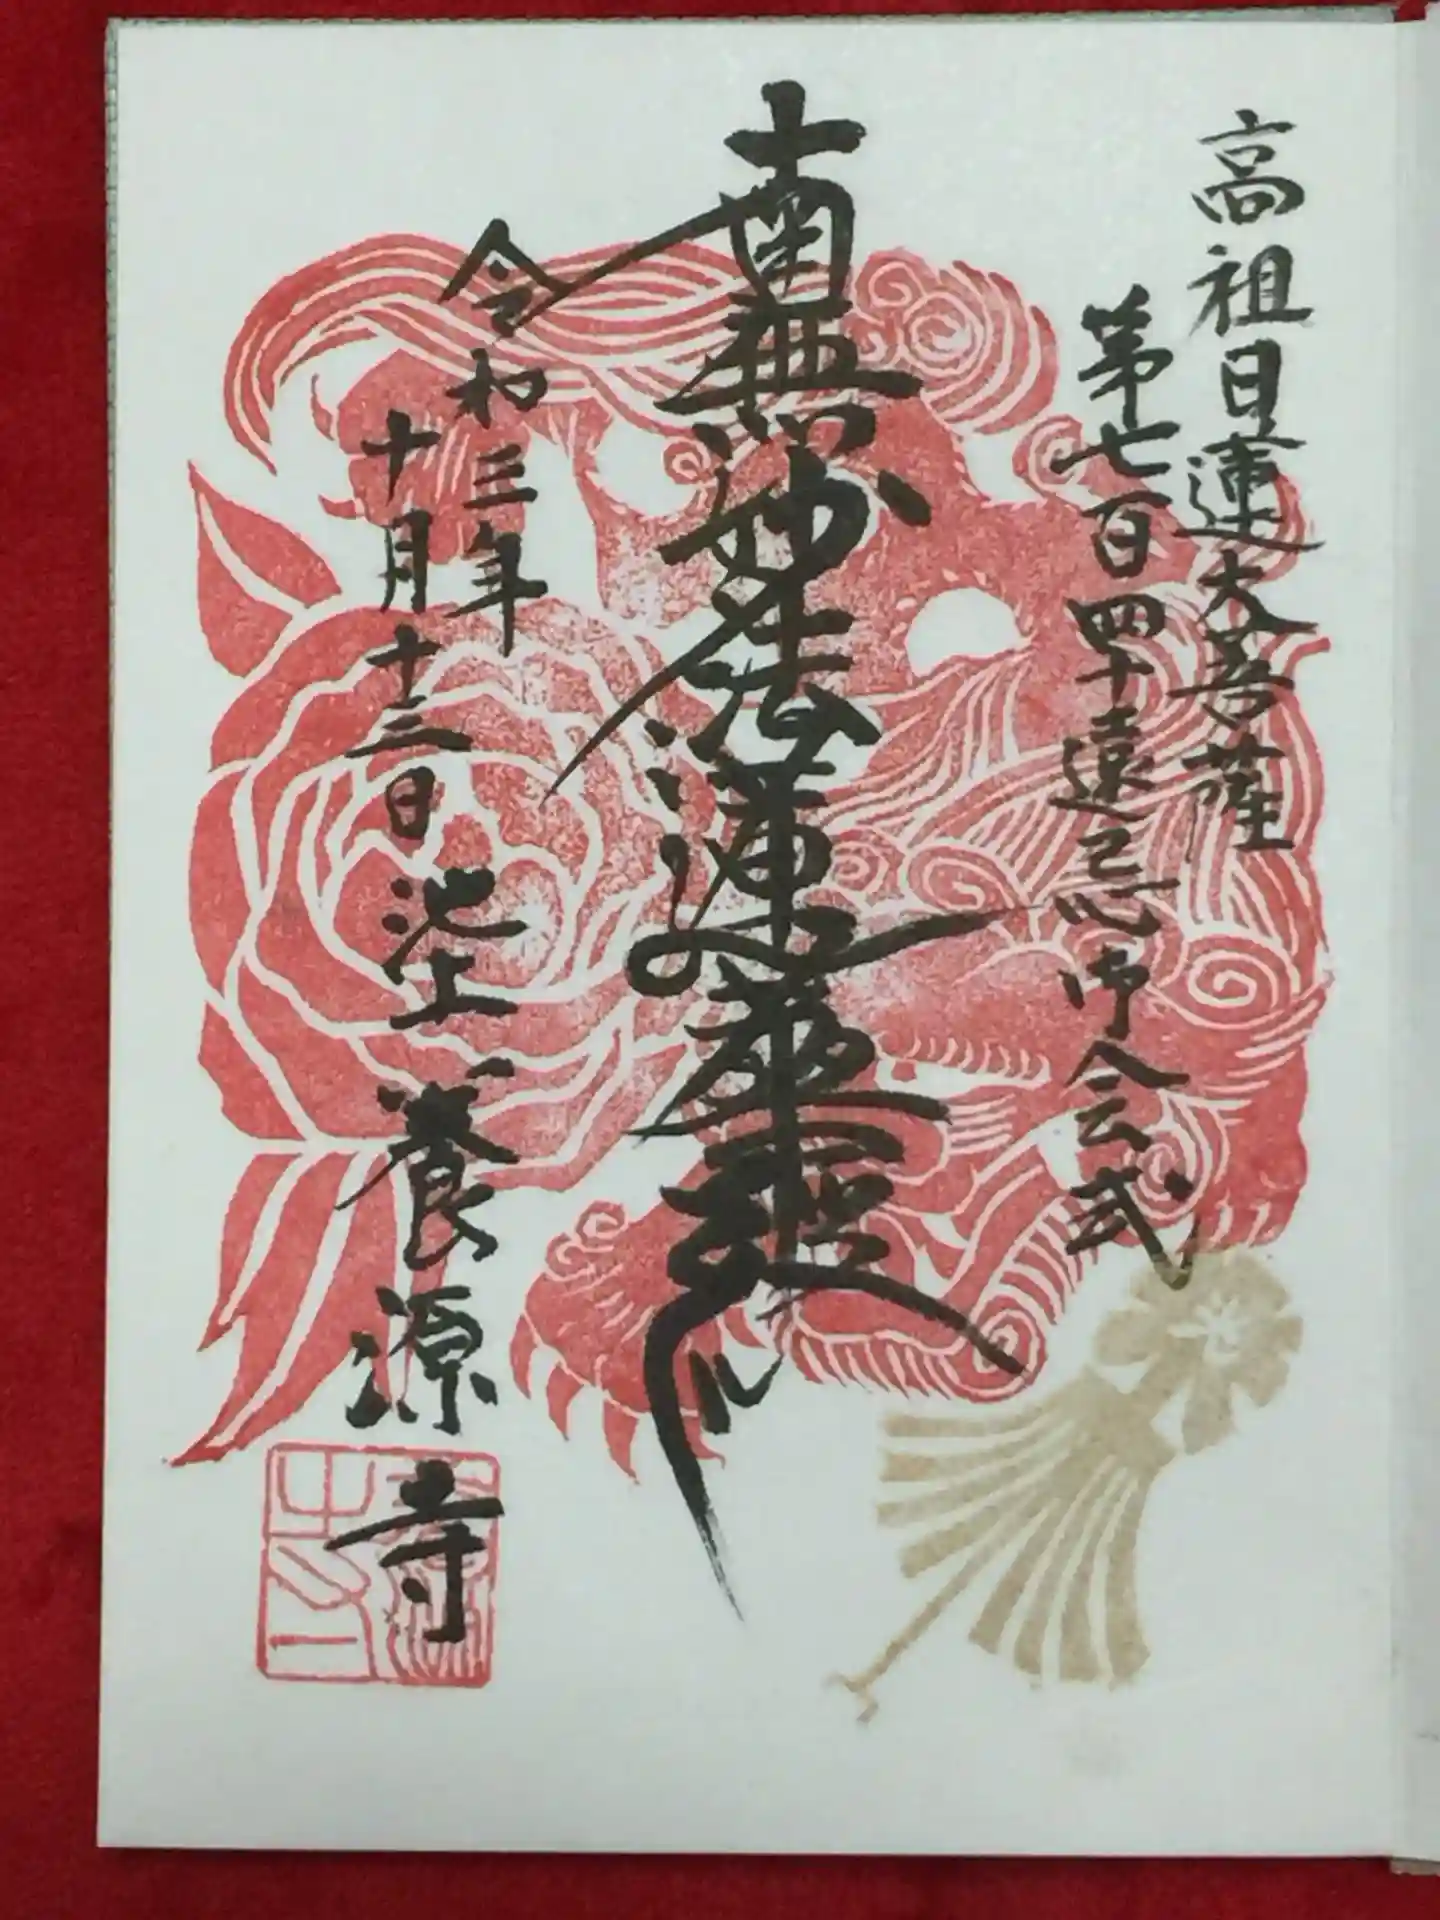 高祖日蓮大菩薩
第七百四十遠忌御会式
南無妙法蓮華経
令和三年
十月十三日
池上 養源寺